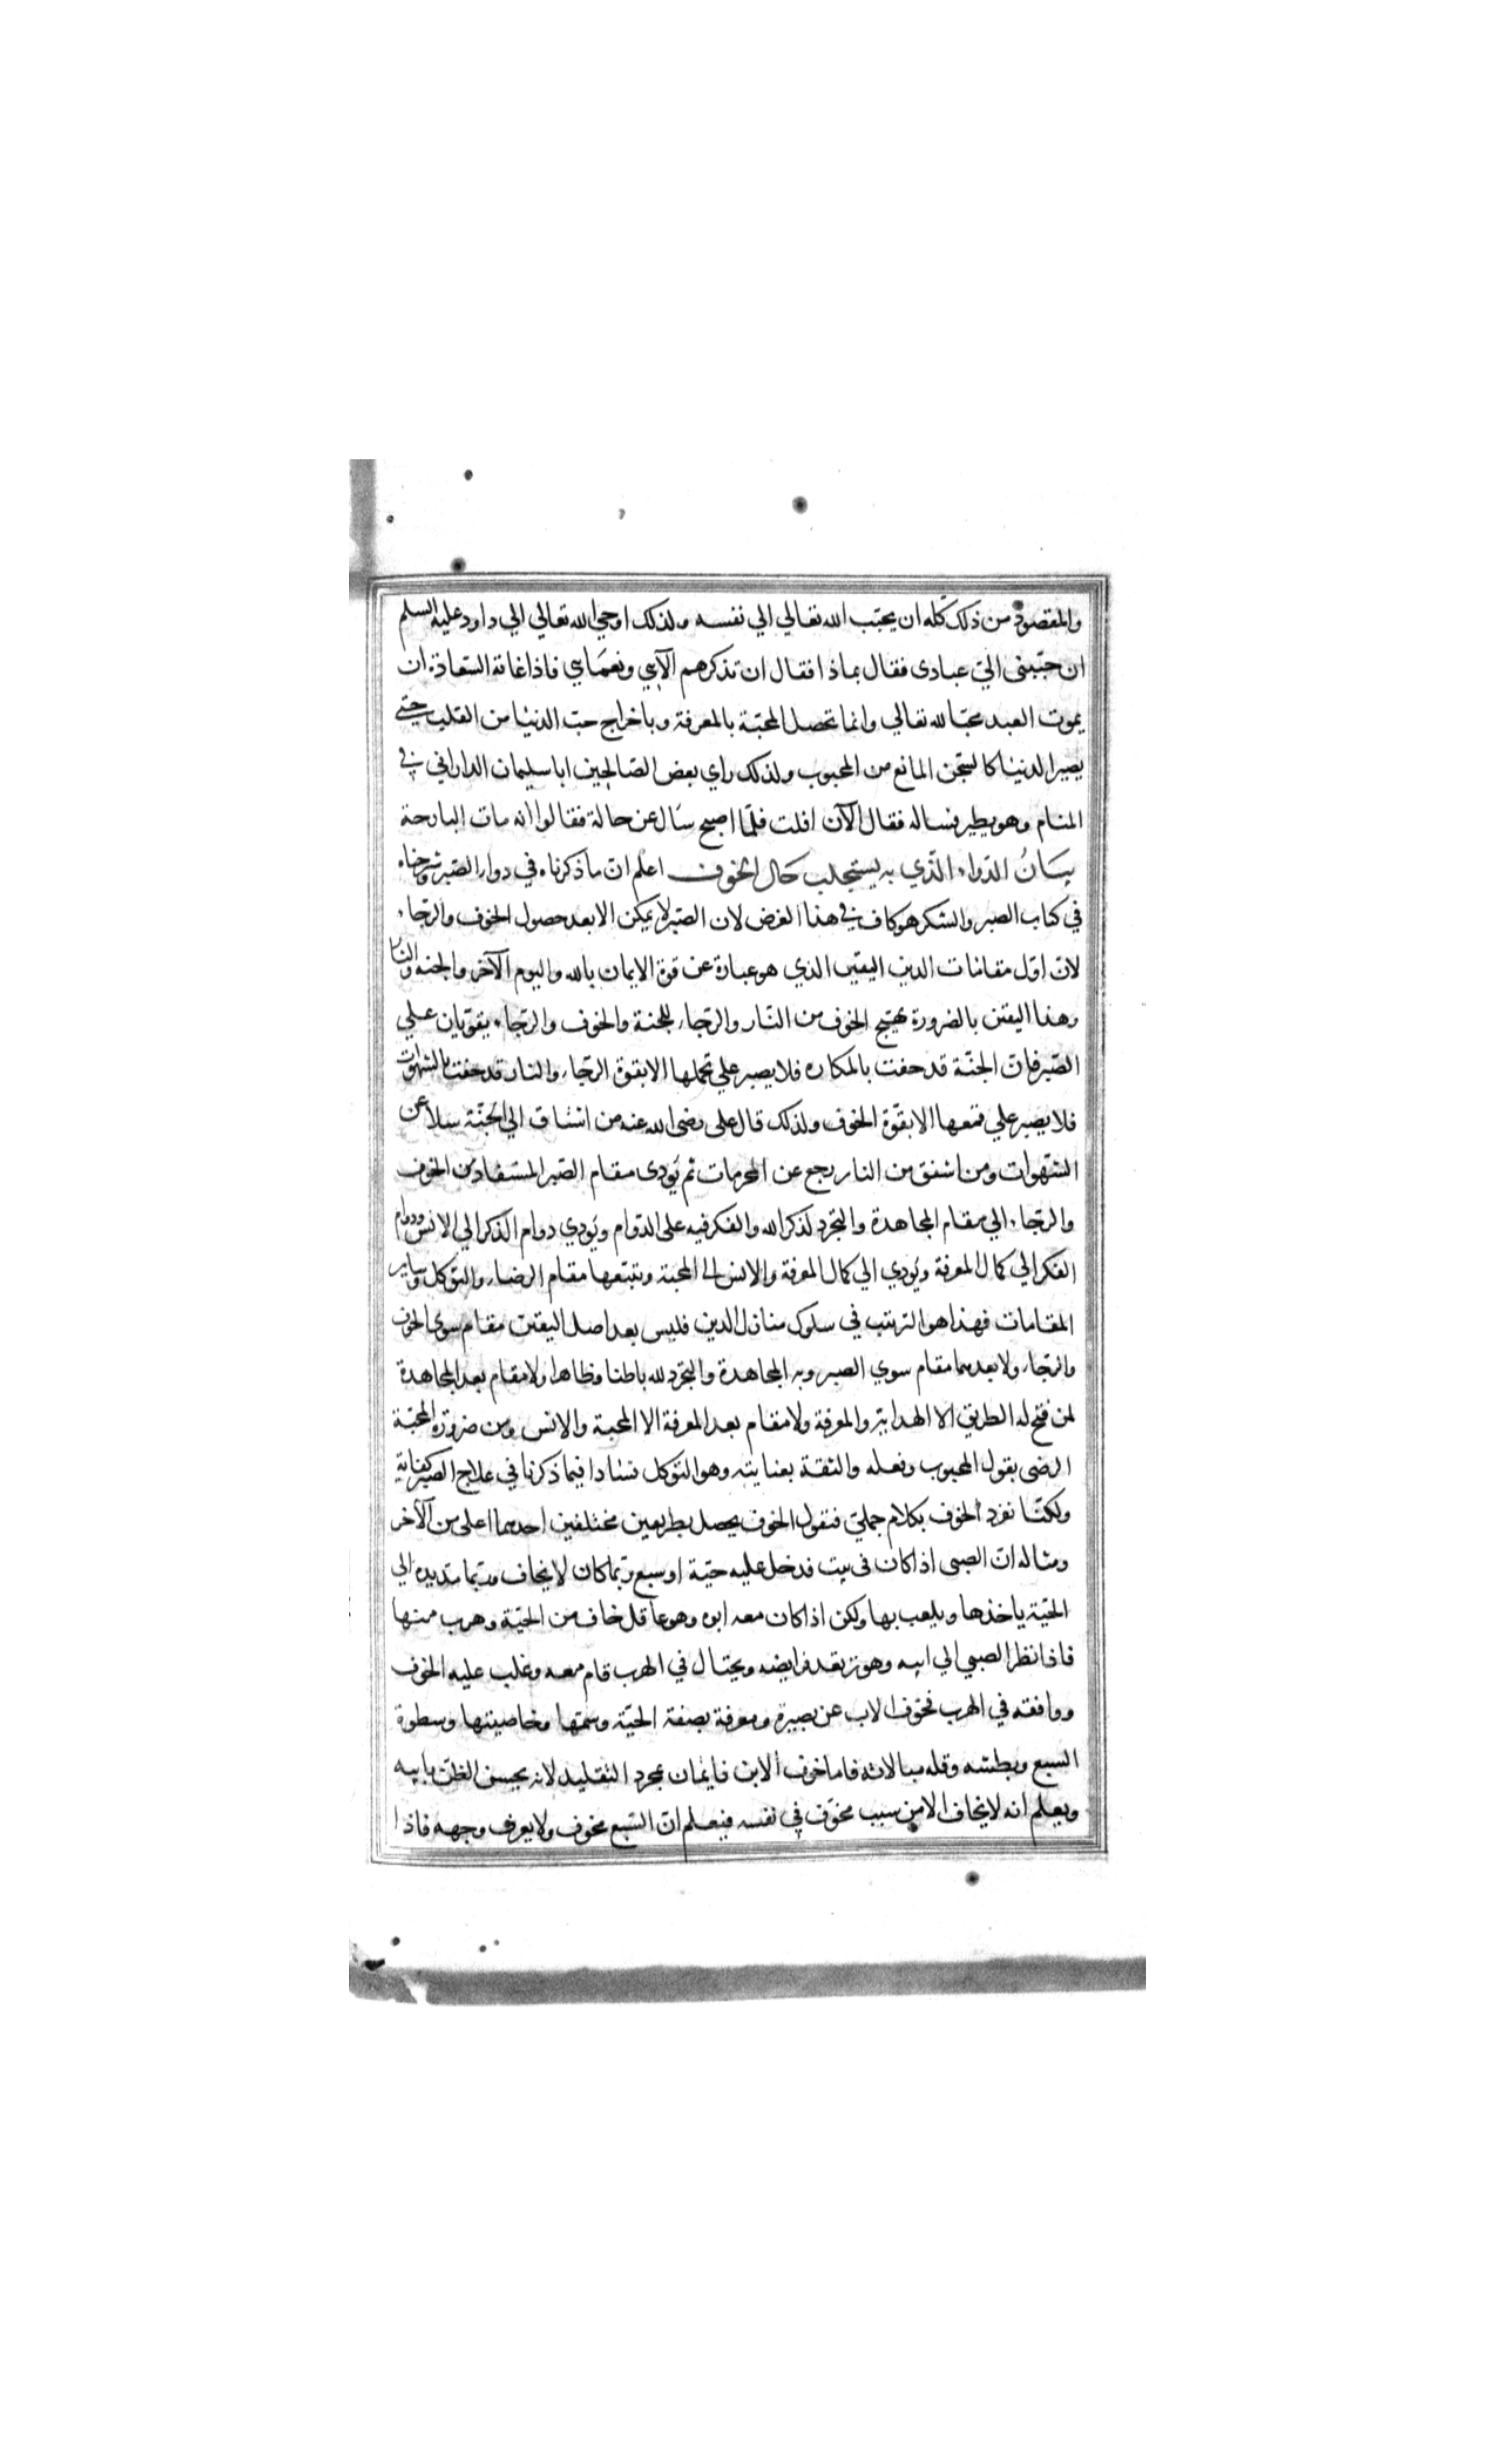 والمقصود من ذلك كله ان يحبب الله تعالي الي نفسه ولذلك اوحي الله تعالي الي داود عليه السلم
ان حببني الي عبادى فقال بماذا فقال ان تذكرهم الآيي ونعمايي فاذا غاية السعادة ان
يموت العبد محبا لله تعالي وانما تحصل المحبّة بالمعرفة وباخراج حبّ الدنيا من القلب حتي
يصير الدنيا كالسّجن المانع من المحبوب ولذلك راي بعض الصّالحين ابا سليمان الداراني في
المنام وهو يطير فساله فقال الآن افلت فلمّا اصبح سَال عن حالة فقالوا انه مات البارحة
بيَانُ الدّواء الّذي به يستجلب حَال الخوف اعلم انّ ما ذكرناه في دواء الصّبر وشرحناه
في كتاب الصبر والشكر هو كاف في هذا الغرض لان الصّبر لا يمكن الا بعد حصول الخوف والرّجاء
لانّ اوّل مقامات الدين اليقين الذي هو عبارة عن قوّة الايمان بالله واليوم الآخر والجنه والنّار
وهذا اليقين بالضرورة يهيّج الخوف من النّار والرّجاء للجنة والخوف والرّجاء يقوّيان علي
الصّبر فانّ الجنّة قد حفت بالمكاره فلا يصبر علي تحملها الا بقوّة الرّجاء والنار قد حفت بالشهوات
فلا يصبر علي قمعها الا بقوّة الخوف ولذلك قال على رضى الله عنه من اشتاق الي الجنّة سلا عن
الشهوات ومن اشفق من النار رجع عن المحرمات ثم يُودى مقام الصّبر المستفاد من الخوف
والرّجاء الي مقام المجاهدة والتجرد لذكر الله والفكر فيه على الدّوام ويُودي دوام الذكر الي الانس ودوام
الفكر الي كمال المعرفة ويُودي الي كمال المعرفة والانس الى المحبة ويتبعها مقام الرضاء والتوكل وساير
المقامات فهذا هو الترتيب في سلوك منازل الدين فليس بعد اصل اليقين مقام سوى الخوف
والرّجاء ولا بعدهما مقام سوي الصبر وبه المجاهدة والتجرّد لله باطنا وظاهرا ولا مقام بعد المجاهدة
لمن فتح له الطريق الا الهداية والمعرفة ولا مقام بعد المعرفة الا المحبة والانس ومن ضرورة المحبّة
الرضى بقول المحبوب وفعله والثقة بعنايته وهو التوكل فاذا فيما ذكرنا في علاج الصبر كفاية
ولكنّا نفرد الخوف بكلام جمليّ فنقول الخوف يحصل بطريقين مختلفين احدهما اعلى من الآخر
ومثاله انّ الصبى اذا كان فى بيت فدخل عليه حيّة او سبع ربّما كان لا يخاف وربّما مدّ يده الي
الحيّة ياخذها ويلعب بها ولكن اذا كان معه ابوه وهو عاقل خاف من الحيّة وهرب منها
فاذا نظر الصبي الي ابيه وهو ترتعد فرايصه ويحتال في الهرب قام معه وغلب عليه الخوف
ووافقه في الهرب فخوف الاب عن بصيرة ومعرفة بصفة الحيّة وسمّها وخاصيتها وسطوة
السبع وبطشه وقله مبالاته فاما خوف الابن فايمان بمجرد التقليد لانه يحسن الظنّ بابيه
ويعلم انه لا يخاف الا من سبب مخوّف في نفسه فيعلم انّ السّبع مخوف ولا يعرف وجهه فاذا